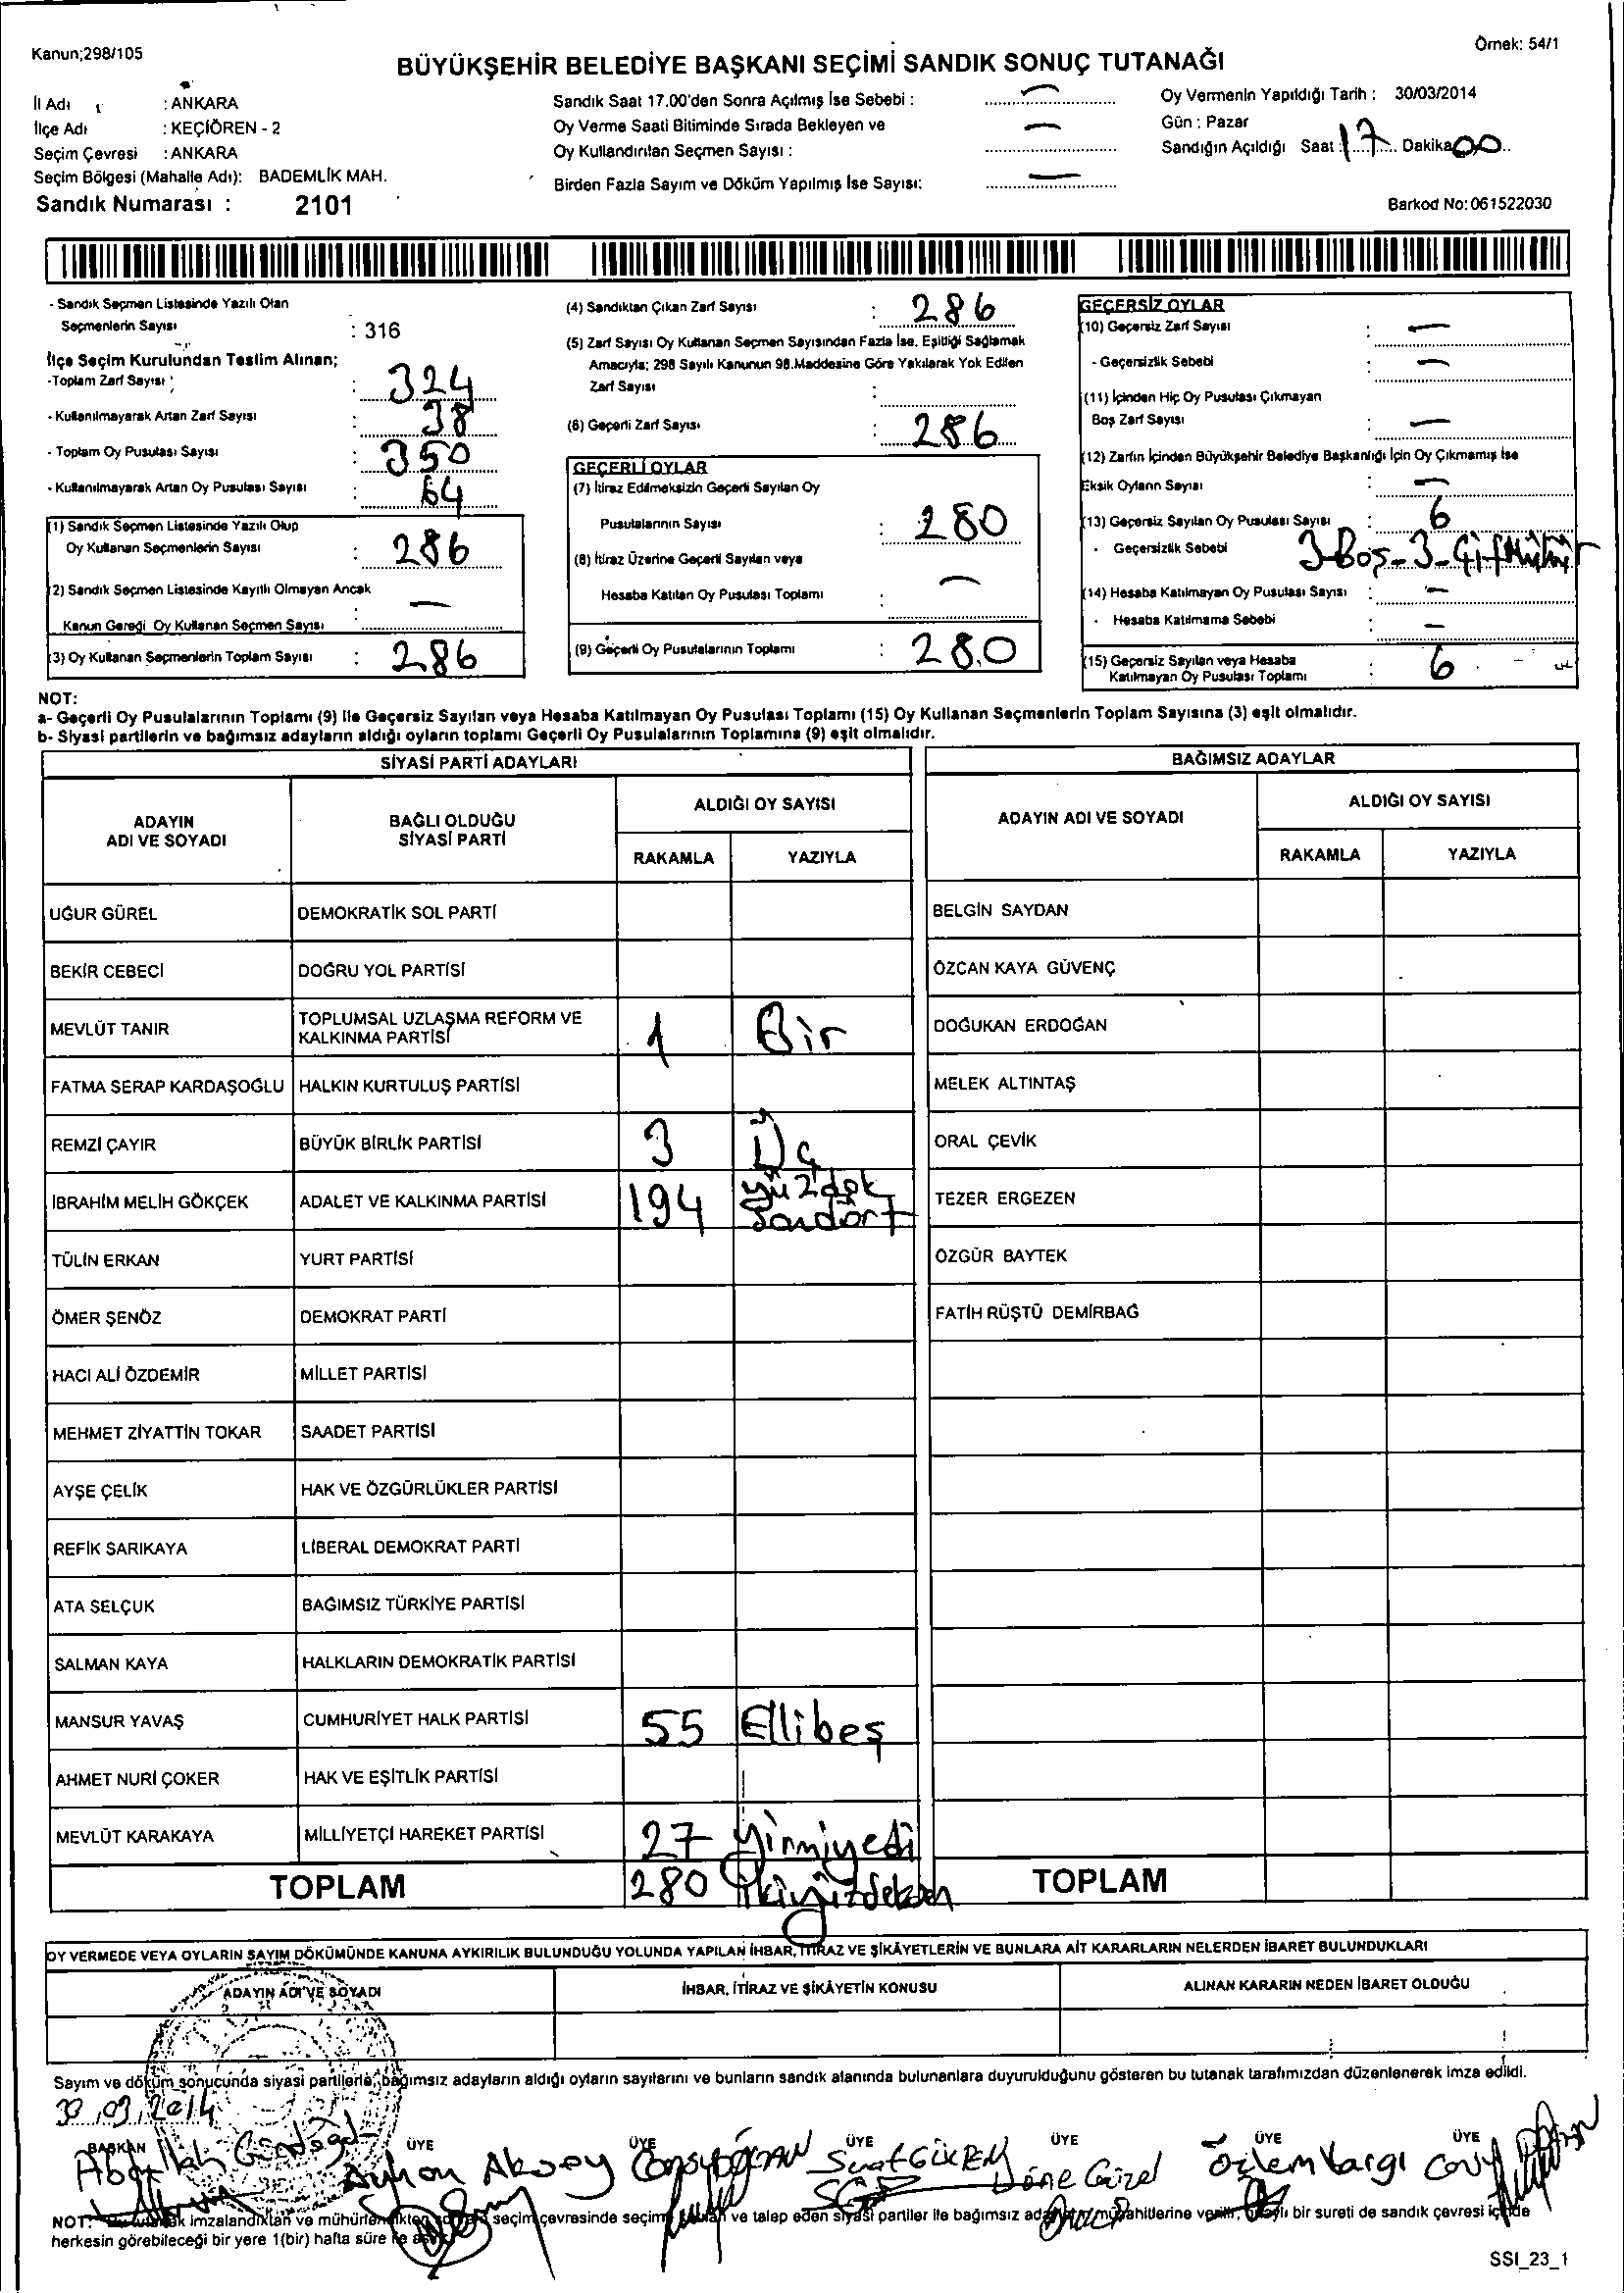 Kanun;298/105
Örnek: 54/1
BÜYÜKŞEHİR BELEDİYE BAŞKANI SEÇİMİ SANDIK SONUÇ TUTANAĞI
İl Adı : ANKARA
İlçe Adı : KEÇİÖREN - 2
Seçim Çevresi : ANKARA
Seçim Bölgesi (Mahalle Adı): BADEMLİK MAH.
Sandık Numarası : 2101
Sandık Saat 17.00'den Sonra Açılmış İse Sebebi : —
Oy Verme Saati Bitiminde Sırada Bekleyen ve
Oy Kullandırılan Seçmen Sayısı : —
Birden Fazla Sayım ve Döküm Yapılmış İse Sayısı: —
Oy Vermenin Yapıldığı Tarih : 30/03/2014
Gün : Pazar
Sandığın Açıldığı Saat : 17 Dakika 00
Barkod No: 061522030
- Sandık Seçmen Listesinde Yazılı Olan
Seçmenlerin Sayısı : 316
İlçe Seçim Kurulundan Teslim Alınan;
-Toplam Zarf Sayısı : 324
- Kullanılmayarak Artan Zarf Sayısı : 38
- Toplam Oy Pusulası Sayısı : 350
- Kullanılmayarak Artan Oy Pusulası Sayısı : 64
(1) Sandık Seçmen Listesinde Yazılı Olup
Oy Kullanan Seçmenlerin Sayısı : 286
(2) Sandık Seçmen Listesinde Kayıtlı Olmayan Ancak
Kanun Gereği Oy Kullanan Seçmen Sayısı : —
(3) Oy Kullanan Seçmenlerin Toplam Sayısı : 286
(4) Sandıktan Çıkan Zarf Sayısı : 286
(5) Zarf Sayısı Oy Kullanan Seçmen Sayısından Fazla İse, Eşitliği Sağlamak
Amacıyla; 298 Sayılı Kanunun 98.Maddesine Göre Yakılarak Yok Edilen
Zarf Sayısı :
(6) Geçerli Zarf Sayısı : 286
GEÇERLİ OYLAR
(7) İtiraz Edilmeksizin Geçerli Sayılan Oy
Pusulalarının Sayısı : 280
(8) İtiraz Üzerine Geçerli Sayılan veya
Hesaba Katılan Oy Pusulası Toplamı : —
(9) Geçerli Oy Pusulalarının Toplamı : 280
GEÇERSİZ OYLAR
(10) Geçersiz Zarf Sayısı : —
- Geçersizlik Sebebi : —
(11) İçinden Hiç Oy Pusulası Çıkmayan
Boş Zarf Sayısı : —
(12) Zarfın İçinden Büyükşehir Belediye Başkanlığı İçin Oy Çıkmamış İse
Eksik Oyların Sayısı : —
(13) Geçersiz Sayılan Oy Pusulası Sayısı : 6
- Geçersizlik Sebebi 3-Boş-3-Çift Mühür
(14) Hesaba Katılmayan Oy Pusulası Sayısı : —
- Hesaba Katılmama Sebebi : —
(15) Geçersiz Sayılan veya Hesaba
Katılmayan Oy Pusulası Toplamı : 6
NOT:
a- Geçerli Oy Pusulalarının Toplamı (9) İle Geçersiz Sayılan veya Hesaba Katılmayan Oy Pusulası Toplamı (15) Oy Kullanan Seçmenlerin Toplam Sayısına (3) eşit olmalıdır.
b- Siyasi partilerin ve bağımsız adayların aldığı oyların toplamı Geçerli Oy Pusulalarının Toplamına (9) eşit olmalıdır.
SİYASİ PARTİ ADAYLARI
ADAYIN ADI VE SOYADI
BAĞLI OLDUĞU SİYASİ PARTİ
ALDIĞI OY SAYISI
RAKAMLA YAZIYLA
UĞUR GÜREL DEMOKRATİK SOL PARTİ
BEKİR CEBECİ DOĞRU YOL PARTİSİ
MEVLÜT TANIR TOPLUMSAL UZLAŞMA REFORM VE KALKINMA PARTİSİ 1 Bir
FATMA SERAP KARDAŞOĞLU HALKIN KURTULUŞ PARTİSİ
REMZİ ÇAYIR BÜYÜK BİRLİK PARTİSİ 3 Üç
İBRAHİM MELİH GÖKÇEK ADALET VE KALKINMA PARTİSİ 194 yüzdok sandört
TÜLİN ERKAN YURT PARTİSİ
ÖMER ŞENÖZ DEMOKRAT PARTİ
HACI ALİ ÖZDEMİR MİLLET PARTİSİ
MEHMET ZİYATTİN TOKAR SAADET PARTİSİ
AYŞE ÇELİK HAK VE ÖZGÜRLÜKLER PARTİSİ
REFİK SARIKAYA LİBERAL DEMOKRAT PARTİ
ATA SELÇUK BAĞIMSIZ TÜRKİYE PARTİSİ
SALMAN KAYA HALKLARIN DEMOKRATİK PARTİSİ
MANSUR YAVAŞ CUMHURİYET HALK PARTİSİ 55 Ellibeş
AHMET NURİ ÇOKER HAK VE EŞİTLİK PARTİSİ
MEVLÜT KARAKAYA MİLLİYETÇİ HAREKET PARTİSİ 27 yirmiyedi
TOPLAM 280 ikiyüzdeksen
BAĞIMSIZ ADAYLAR
ADAYIN ADI VE SOYADI
ALDIĞI OY SAYISI
RAKAMLA YAZIYLA
BELGİN SAYDAN
ÖZCAN KAYA GÜVENÇ
DOĞUKAN ERDOĞAN
MELEK ALTINTAŞ
ORAL ÇEVİK
TEZER ERGEZEN
ÖZGÜR BAYTEK
FATİH RÜŞTÜ DEMİRBAĞ
TOPLAM
OY VERMEDE VEYA OYLARIN SAYIM DÖKÜMÜNDE KANUNA AYKIRILIK BULUNDUĞU YOLUNDA YAPILAN İHBAR, İTİRAZ VE ŞİKÂYETLERİN VE BUNLARA AİT KARARLARIN NELERDEN İBARET BULUNDUKLARI
ADAYIN ADI VE SOYADI
İHBAR, İTİRAZ VE ŞİKÂYETİN KONUSU
ALINAN KARARIN NEDEN İBARET OLDUĞU
Sayım ve döküm sonucunda siyasi partilerle, bağımsız adayların aldığı oyların sayılarını ve bunların sandık alanında bulunanlara duyurulduğunu gösteren bu tutanak tarafımızdan düzenlenerek imza edildi.
30.03.2014
BAŞKAN ÜYE ÜYE ÜYE ÜYE ÜYE ÜYE
Ayhan Aksoy Suat GÜREM Döne Güzel Özlem Yargı
NOT: imzalandıktan ve mühürlendikten seçim çevresinde seçime ve talep eden siyasi partiler ile bağımsız müşahitlerine bir sureti de sandık çevresi içinde
herkesin görebileceği bir yere 1(bir) hafta süre ile
SSI_23_1